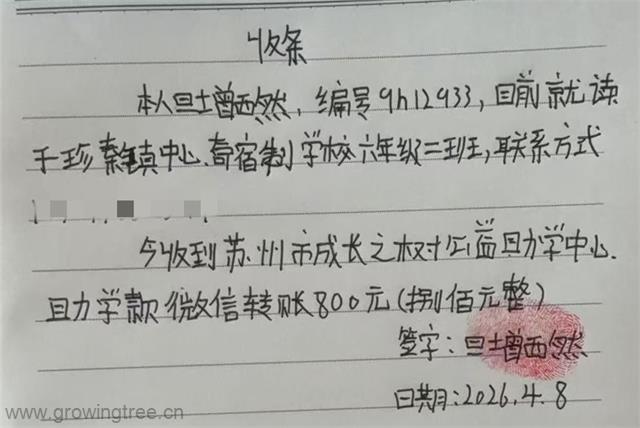 收条
本人旦土曾西然，编号gh12933，目前就读
于珍秦镇中心寄宿制学校六年级二班，联系方式
今收到苏州市成长之树公益助学中心
助学款微信转账800元(捌佰元整)
签字：旦土曾西然
日期：2026.4.8
www.growingtree.cn